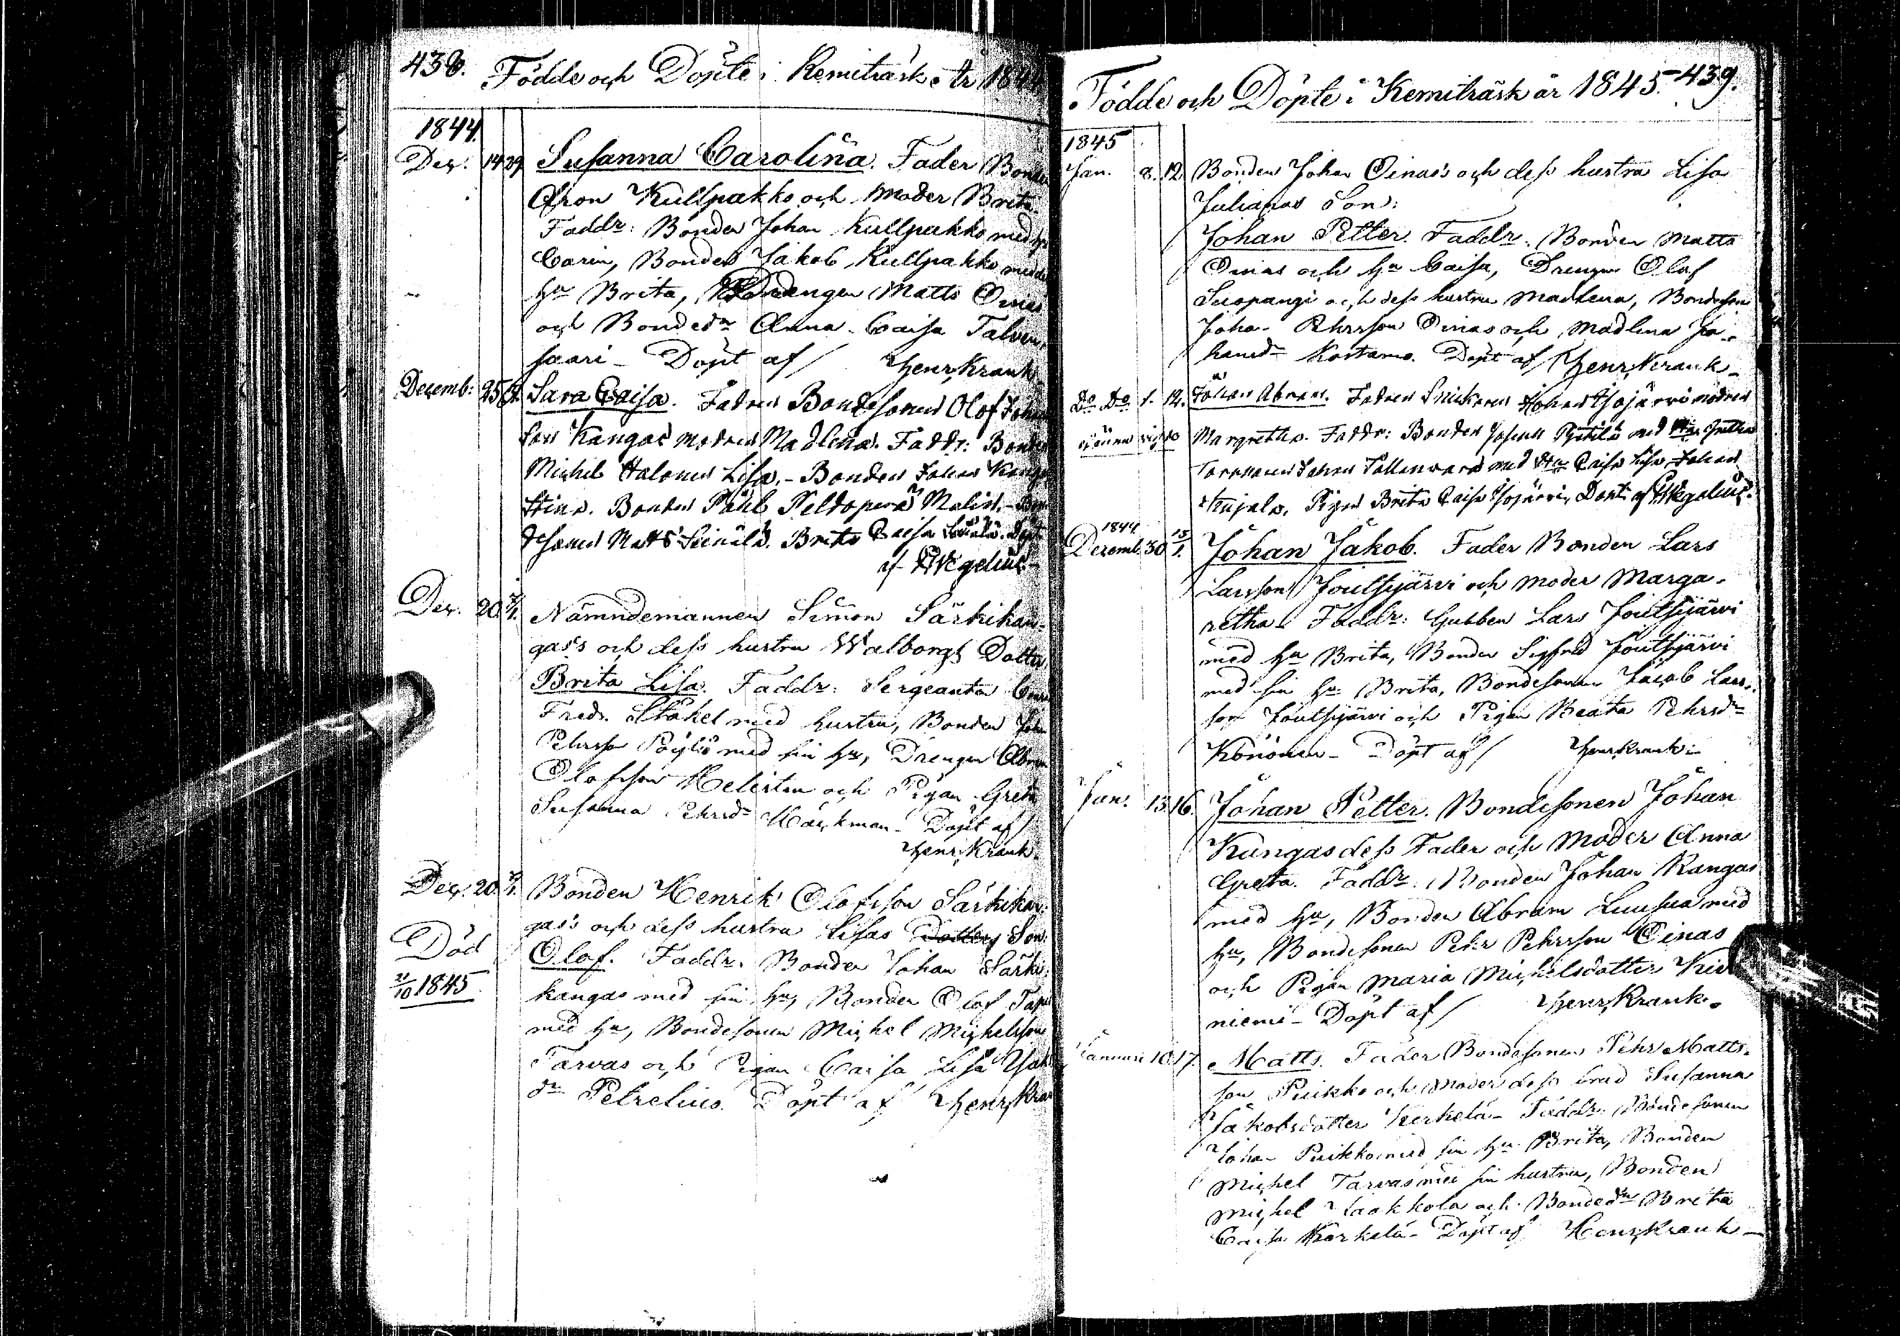 438. Födde och Döpte i Kemiträsk År 1844
1844.
Dec. 14 29 Susanna Carolina. Fader Bonden
Aron Kullpakko och Moder Brita.
Faddr: Bonden Johan Kullpakko med hu
Carin, Bonden Jakob Kullpakko med
hu Brita, Drengen Matts Oinas
och Bondedr Anna Caisa Talven-
saari - Döpt af Henr, Krank.
Decemb: 25 Sara Caisa. Fadren Bondesonen Olof Johans
son Kangas modren Madlena. Faddr: Bonden
Michel Halonen Lisa. - Bonden Johan Kangas
Stina. Bonden Påhl Peldoperä Malin. - Bon
desonen Matts Leinälä. Brita Caisa Döpt
af
Dec. 20 Nämndemannen Simon Särkikan-
gas's och dess hustru Walborgs Dotter
Brita Lisa. Faddr: Sergeanten
Fredr. Ståkel med hustru, Bonden Joh
Pehrss Pöyliö med sin hu, Drengen Abram
Olofsson Heleisten och Pigan Greta
Susanna Pehrsdr Hackman - Döpt af
Henr, Krank.
Dec. 20 Bonden Henrik Olofsson Särkikan
gas's och dess hustru Lisas Dotter Son
Död Olof. Faddr. Bonden Johan Särki
21/10 1845. kangas med sin hu, Bonden Olof
med hu, Bondesonen Michel Michelsson
Tarvas och Pigan Caisa Lisa
dr Petrelius. Döpt af Henr, Kran
Födde och Döpte i Kemiträsk år 1845. 439.
1845
Jan. 8. 12. Bonden Johan Oinas's och dess hustru Lisa
Julianas Son:
Johan Petter. Faddr. Bonden Matts
Oinas och hu Caisa, Drengen Olof
Suopangi och dess hustru Madlena, Bondeson
Johan Pehrsson Oinas och Madlena Jo-
hansdr Kostamo. Döpt af Henr, Krank -
Do Do 1. 12. Johan Abram. Fadren Johan Isojärvi modren
Margretha. Faddr: Bonden Johan med Hu
Johan med Hu Caisa Lisa Johan
Kujala. Pigan Brita Caisa Isojärvi, Döpt af
1844
Decemb. 30 15/1. Johan Jakob. Fader Bonden Lars
Larsson Joutsijärvi och Moder Marga-
retha. Faddr: Gubben Lars Joutsijärvi
med hu Brita, Bonden Sigfred Joutsijärvi
med sin hu Brita, Bondesonen Jacob Lars-
son Joutsijärvi och Pigan Beata Pehrsdr
Könönen - Döpt af Henr, Krank -
Jan. 13. 16. Johan Petter. Bondesonen Johan
Kangas dess Fader och Moder Anna
Greta. Faddr. Bonden Johan Kangas
med hu, Bonden Abram Luusua med
hu, Bondesonen Pehr Pehrsson Oinas
och Pigan Maria Michelsdotter
niemi - Döpt af Henr, Krank.
Januari 10. 17. Matts. Fader Bondesonen Pehr Matts-
son Puikko och Moder dess brud Susanna
Jakobsdotter Kerkelä - Faddr. Bondesonen
Johan Puikko med sin hu Brita, Bonden
Michel Tarvas med sin hustru, Bonden
Michel Jaakkola och Bondedr Brita
Caisa Kerkelä - Döpt af Henr, Krank -